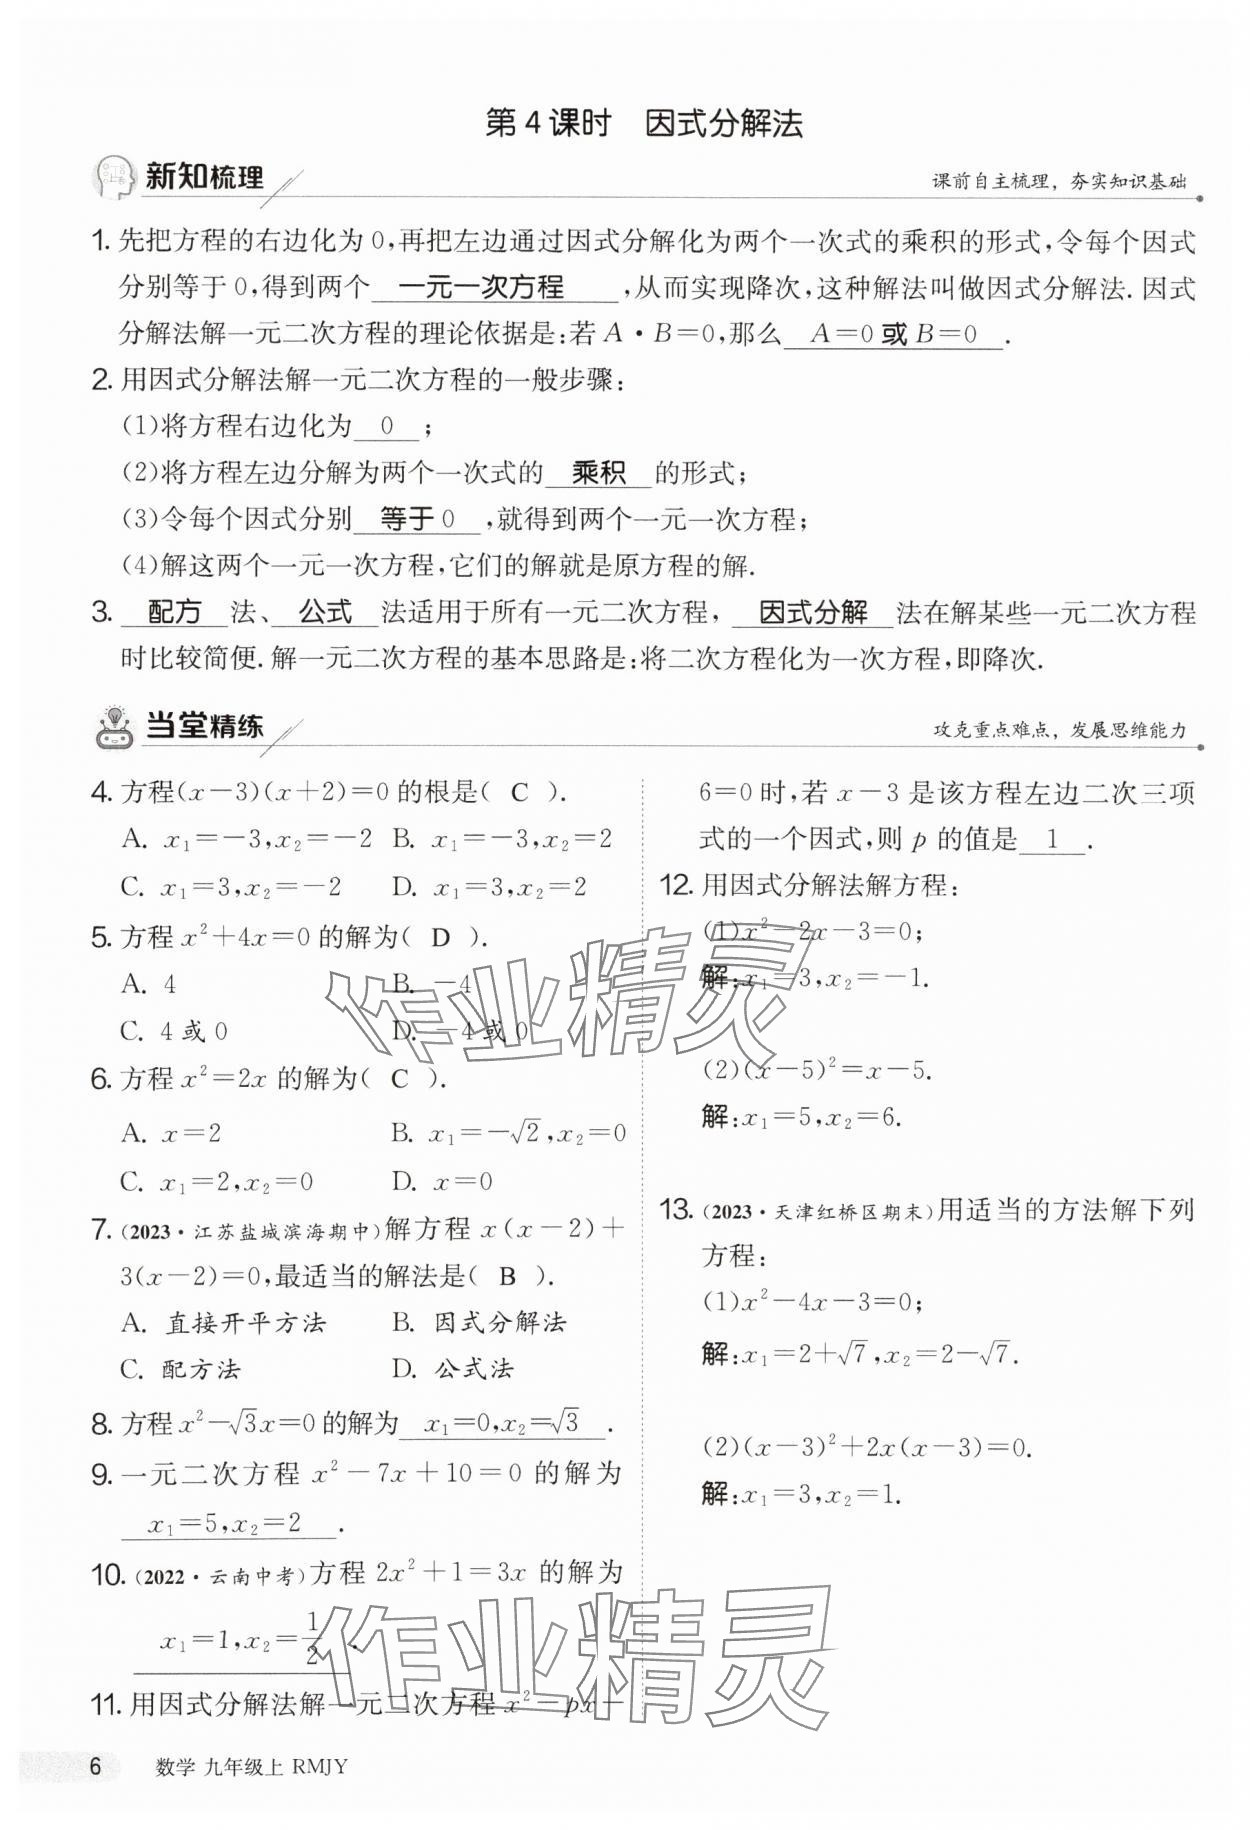 第4课时 因式分解法
新知梳理
课前自主梳理，夯实知识基础
1. 先把方程的右边化为0,再把左边通过因式分解化为两个一次式的乘积的形式,令每个因式
分别等于0,得到两个 一元一次方程 ,从而实现降次,这种解法叫做因式分解法. 因式
分解法解一元二次方程的理论依据是:若 A·B=0,那么 A=0 或 B=0 .
2. 用因式分解法解一元二次方程的一般步骤:
(1)将方程右边化为 0 ;
(2)将方程左边分解为两个一次式的 乘积 的形式;
(3)令每个因式分别 等于0 ,就得到两个一元一次方程;
(4)解这两个一元一次方程,它们的解就是原方程的解.
3. 配方 法、 公式 法适用于所有一元二次方程, 因式分解 法在解某些一元二次方程
时比较简便. 解一元二次方程的基本思路是:将二次方程化为一次方程,即降次.
当堂精练
攻克重点难点，发展思维能力
4. 方程(x-3)(x+2)=0 的根是( C ).
A. x₁=-3,x₂=-2 B. x₁=-3,x₂=2
C. x₁=3,x₂=-2 D. x₁=3,x₂=2
5. 方程 x²+4x=0 的解为( D ).
A. 4 B. -4
C. 4 或 0 D. -4 或 0
6. 方程 x²=2x 的解为( C ).
A. x=2 B. x₁=-√2,x₂=0
C. x₁=2,x₂=0 D. x=0
7. (2023·江苏盐城滨海期中)解方程 x(x-2)+
3(x-2)=0,最适当的解法是( B ).
A. 直接开平方法 B. 因式分解法
C. 配方法 D. 公式法
8. 方程 x²-√3x=0 的解为 x₁=0,x₂=√3 .
9. 一元二次方程 x²-7x+10=0 的解为
x₁=5,x₂=2 .
10. (2022·云南中考)方程 2x²+1=3x 的解为
x₁=1,x₂=1/2 .
11. 用因式分解法解一元二次方程 x²-px-
6=0 时,若 x-3 是该方程左边二次三项
式的一个因式,则 p 的值是 1 .
12. 用因式分解法解方程:
(1)x²-2x-3=0;
解:x₁=3,x₂=-1.
(2)(x-5)²=x-5.
解:x₁=5,x₂=6.
13. (2023·天津红桥区期末)用适当的方法解下列
方程:
(1)x²-4x-3=0;
解:x₁=2+√7,x₂=2-√7.
(2)(x-3)²+2x(x-3)=0.
解:x₁=3,x₂=1.
作业精灵
作业精灵
6 数学 九年级上 RMJY